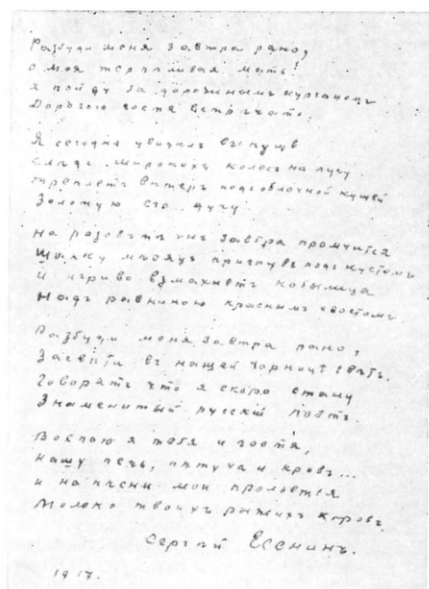 Разбуди меня завтра рано,
О моя терпѣливая мать!
Я пойду за дорожнымъ курганомъ
Дорогого гостя встрѣчать.
Я сегодня увидилъ въ пущѣ
Слѣдъ широкихъ колесъ на лугу
Треплетъ вѣтеръ подъ облачной кущей
Золотую его дугу
На разсвѣтѣ онъ завтра промчится
Шапку мѣсяцъ пригнувъ подъ кустомъ
И игриво взмахнетъ кобылица
Надъ равниною краснымъ хвостомъ.
Разбуди меня завтра рано,
Засвѣти въ нашей горницѣ свѣтъ.
Говорятъ что я скоро стану
Знаменитый русскій поэтъ.
Воспою я тебя и гостя,
Нашу печь, пѣтуха и кровъ...
И на пѣсни мои прольется
Молоко твоихъ рыжихъ коровъ.
Сергѣй Есенинъ.
1917.